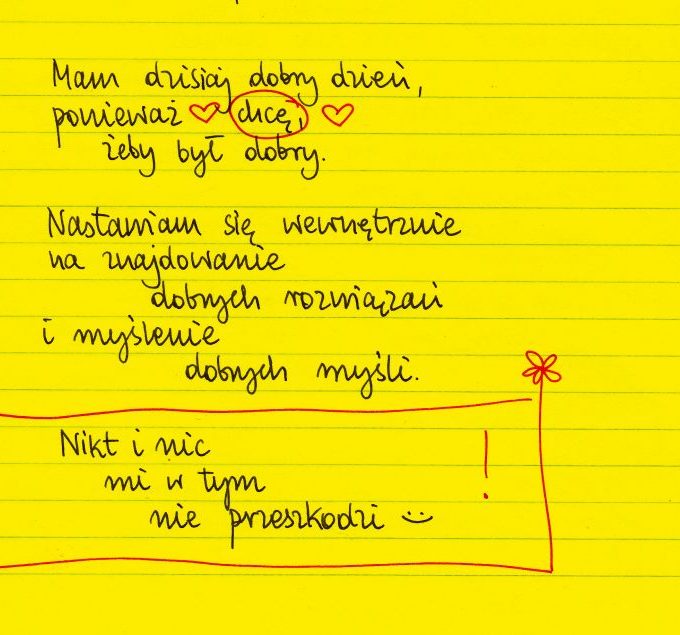 Mam dzisiaj dobry dzień,
ponieważ ♡ chcę, ♡
żeby był dobry.
Nastawiam się wewnętrznie
na znajdowanie
dobrych rozwiązań
i myślenie
dobrych myśli.
Nikt i nic
mi w tym
nie przeszkodzi :) !